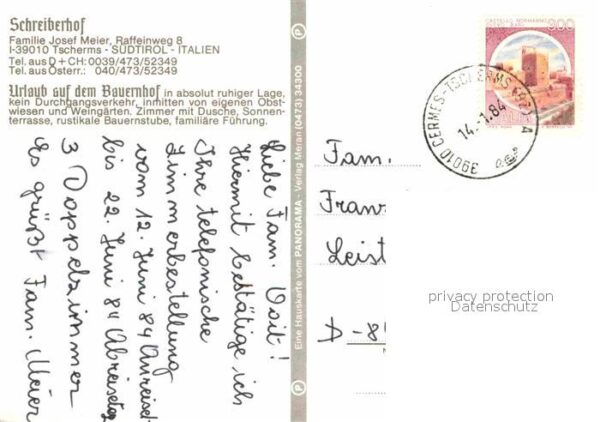 Schreiberhof
Familie Josef Meier, Raffeinweg 8
I-39010 Tscherms - SÜDTIROL - ITALIEN
Tel. aus D + CH: 0039/473/52349
Tel. aus Österr.: 040/473/52349
Urlaub auf dem Bauernhof in absolut ruhiger Lage,
kein Durchgangsverkehr, inmitten von eigenen Obst-
wiesen und Weingärten. Zimmer mit Dusche, Sonnen-
terrasse, rustikale Bauernstube, familiäre Führung.
Liebe Fam. Voit!
Hiermit bestätige ich
Ihre telefonische
Zimmerbestellung
vom 12. Juni 84 Anreisetag
bis 22. Juni 84 Abreisetag
3 Doppelzimmer
Es grüßt Fam. Meier
Eine Hauskarte vom PANORAMA - Verlag Meran (0473) 34300
P
P
900
39010 CERMES-TSCHERMS
14.-1.84
Fam.
Fran
Leist
D-8
privacy protection
Datenschutz